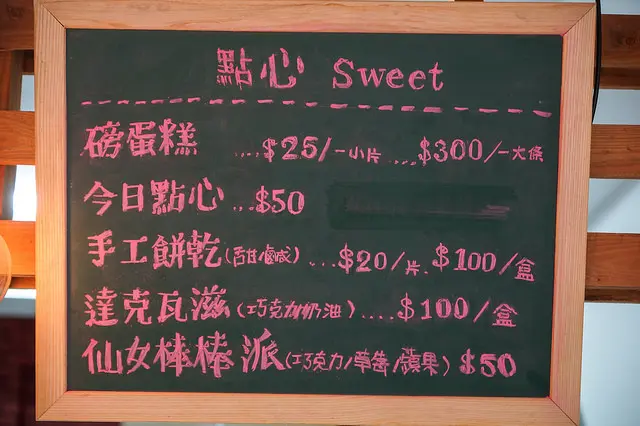 點心 Sweet
磅蛋糕 ....$25/一小片 ....$300/一大條
今日點心...$50
手工餅乾(甜鹹)...$20/片.$100/盒
達克瓦滋(巧克力/奶油)....$100/盒
仙女棒棒派(巧克力/草莓/蘋果)$50